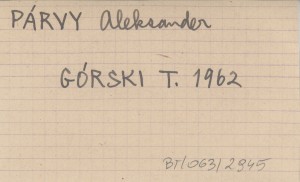 PÁRVY Aleksander
GÓRSKI T. 1962
BT/063/2945